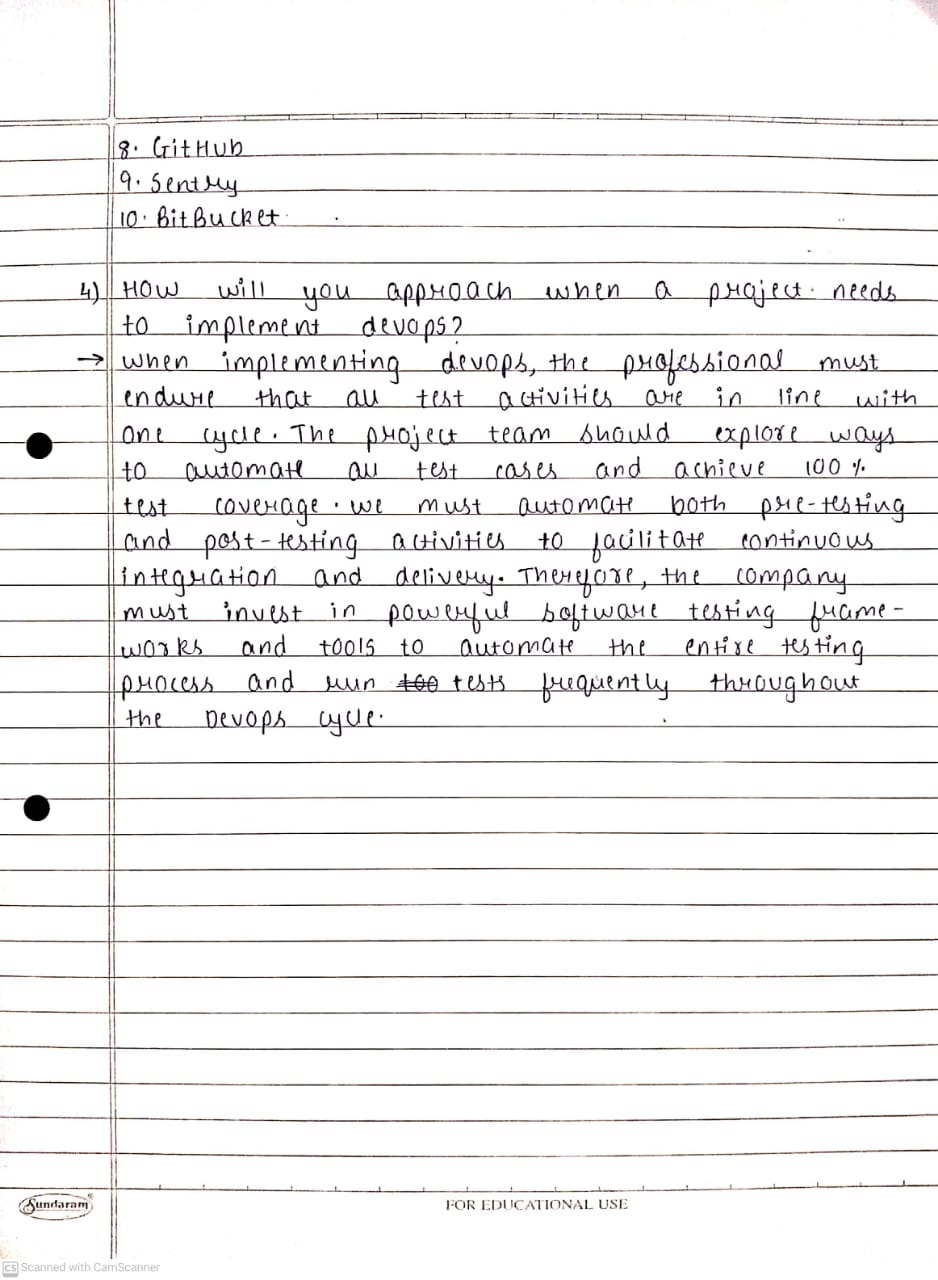 8. GitHub
9. Sentry
10. BitBucket
4) How will you approach when a project needs
to implement devops?
→ When implementing devops, the professional must
endure that all test activities are in line with
one cycle. The project team should explore ways
to automate all test cases and achieve 100 %
test coverage. we must automate both pre-testing
and post-testing activities to facilitate continuous
integration and delivery. Therefore, the company
must invest in powerful software testing frame-
works and tools to automate the entire testing
process and run too tests frequently throughout
the Devops cycle.
Sundaram®
FOR EDUCATIONAL USE
CS Scanned with CamScanner